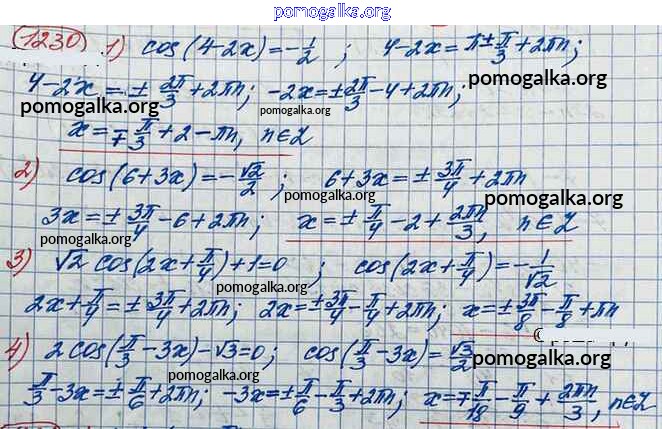 pomogalka.org
1230 1) cos(4-2x)=-1/2 ; 4-2x=π±π/3+2πn;
pomogalka.org
4-2x=±2π/3+2πn; -2x=±2π/3-4+2πn;
pomogalka.org pomogalka.org
x=∓π/3+2-πn, n∈Z
pomogalka.org
2) cos(6+3x)=-√2/2 ; 6+3x=±3π/4+2πn
pomogalka.org pomogalka.org
3x=±3π/4-6+2πn; x=±π/4-2+2πn/3, n∈Z
pomogalka.org
3) √2 cos(2x+π/4)+1=0 ; cos(2x+π/4)=-1/√2
pomogalka.org
2x+π/4=±3π/4+2πn; 2x=±3π/4-π/4+2πn; x=±3π/8-π/8+πn
4) 2cos(π/3-3x)-√3=0; cos(π/3-3x)=√3/2
pomogalka.org pomogalka.org
π/3-3x=±π/6+2πn; -3x=±π/6-π/3+2πn; x=∓π/18-π/9+2πn/3, n∈Z